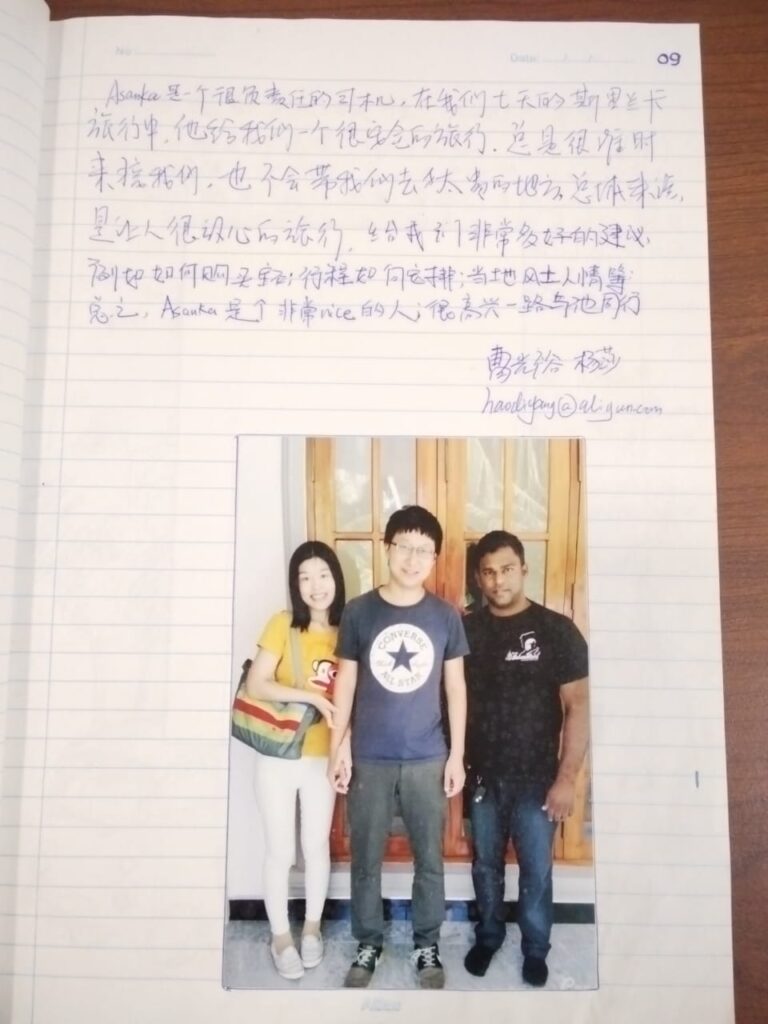 No
Date: / /
09
Asanka是一个很负责任的司机,在我们七天的斯里兰卡
旅行中,他给我们一个很安全的旅行。总是很准时
来接我们,也不会带我们去太贵的地方。总体来说,
是让人很放心的旅行,给我们非常多好的建议,
例如如何购买宝石;行程如何安排;当地风土人情等
总之,Asanka是个非常nice的人;很高兴一路与他同行
杨莎
haodiyang@aliyun.com
CONVERSE
ALL STAR